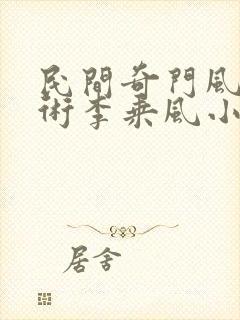 民間奇門風
術李乘風小
居舍